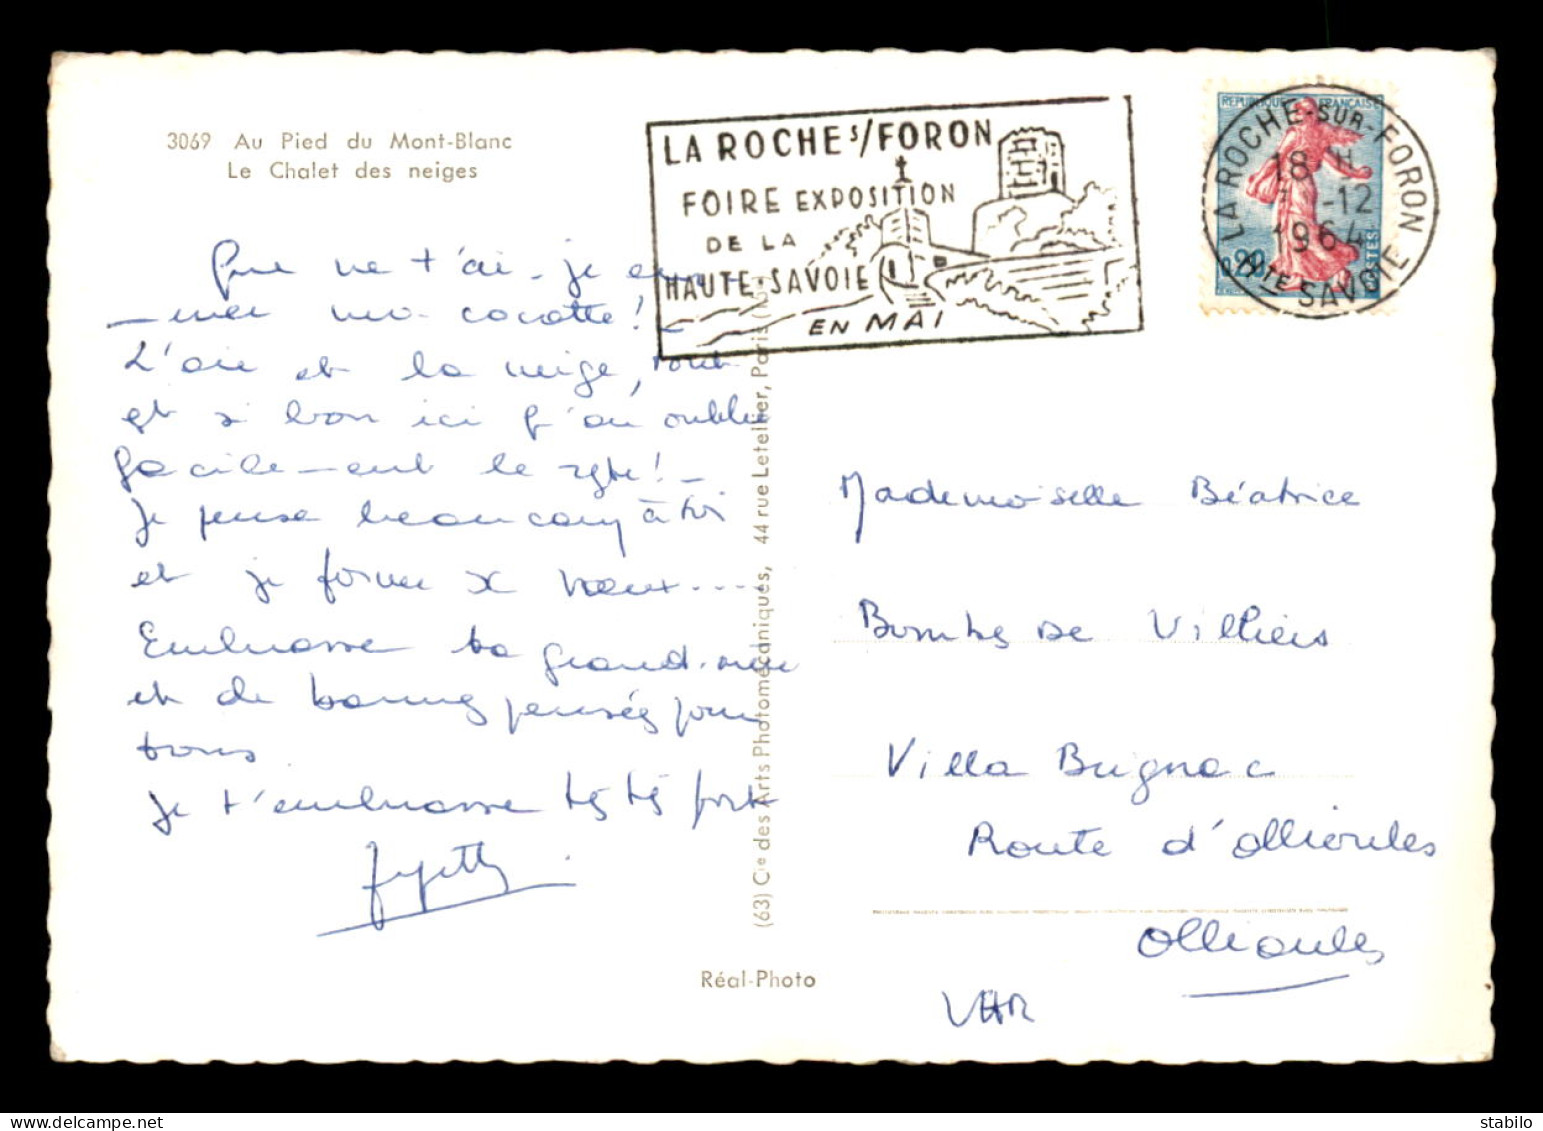 3069 Au Pied du Mont-Blanc
Le Chalet des neiges
LA ROCHE S/FORON
FOIRE EXPOSITION
DE LA
HAUTE-SAVOIE
EN MAI
REPUBLIQUE FRANÇAISE
0,20
POSTES
LA ROCHE-SUR-FORON
18 H
-12
1964
HTE SAVOIE
Que ne t'ai-je em-
-mener ma cocotte! -
L'air et la neige, tout
est si bon ici q'on oublie
facile-ent le reste! -
Je pense beaucoup à toi
et je forme x vœux....
Embrasse ta grand-mère
et de bonnes pensées pour
tous
Je t'embrasse très très fort
(63) Cie des Arts Photomécaniques, 44 rue Letellier, Paris
Réal-Photo
Mademoiselle Béatrice
de Villiers
Villa Brignac
Route d'Ollioules
Ollioules
VAR
delcampe.net